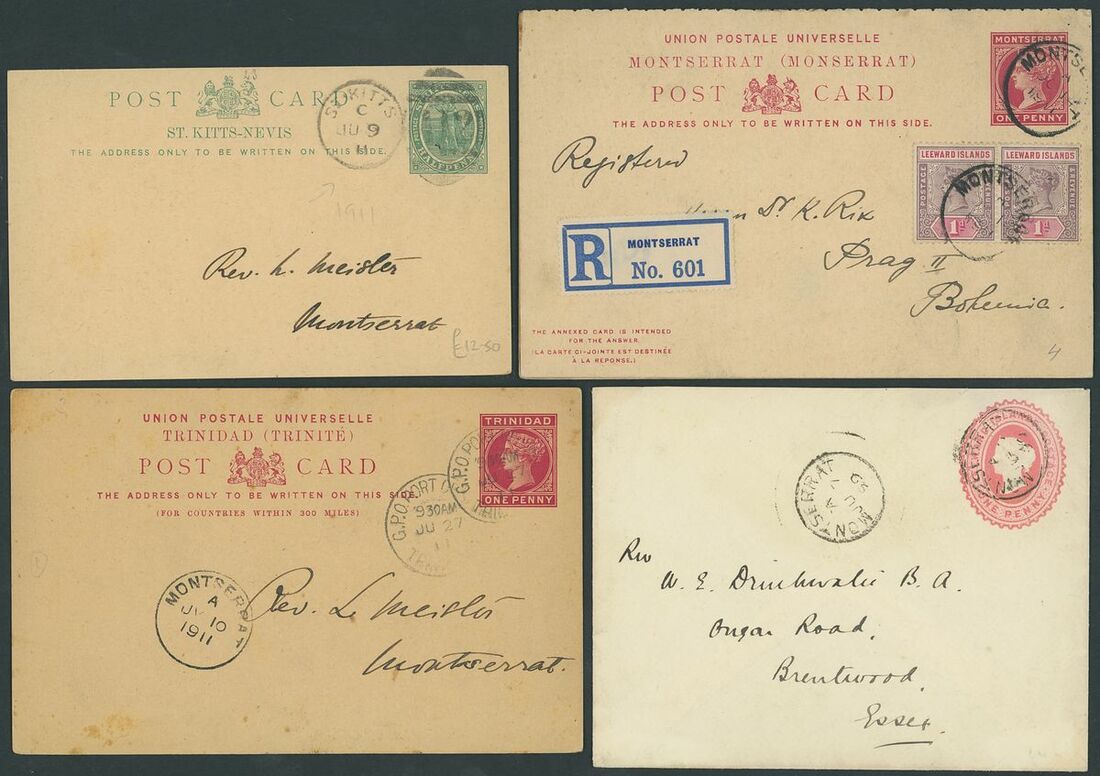 POST CARD
ST. KITTS-NEVIS
THE ADDRESS ONLY TO BE WRITTEN ON THIS SIDE.
ST. KITTS
C
JU 9
11
HALFPENNY
1911
Rev. L. Meister
Montserrat
£12-50
UNION POSTALE UNIVERSELLE
MONTSERRAT (MONSERRAT)
POST CARD
THE ADDRESS ONLY TO BE WRITTEN ON THIS SIDE.
MONTSERRAT
ONE PENNY
MONTSE
LEEWARD ISLANDS
LEEWARD ISLANDS
POSTAGE
& REVENUE
1d
1d
MONTSERRAT
Registered
Dr. K. Rix
Prag II
Bohemia.
R
MONTSERRAT
No. 601
THE ANNEXED CARD IS INTENDED
FOR THE ANSWER.
(LA CARTE CI-JOINTE EST DESTINÉE
À LA RÉPONSE.)
4
UNION POSTALE UNIVERSELLE
TRINIDAD (TRINITÉ)
POST CARD
THE ADDRESS ONLY TO BE WRITTEN ON THIS SIDE.
(FOR COUNTRIES WITHIN 300 MILES)
TRINIDAD
ONE PENNY
G.P.O. PO
G.P.O. PORT O
930AM
JU 27
11
MONTSERRAT
A
10
1911
Rev. L. Meister
Montserrat.
MONTSERRAT
A
JU 7
99
ONE PENNY
Rev
W. E. Drinkwater B. A.
Ongar Road,
Brentwood
Essex